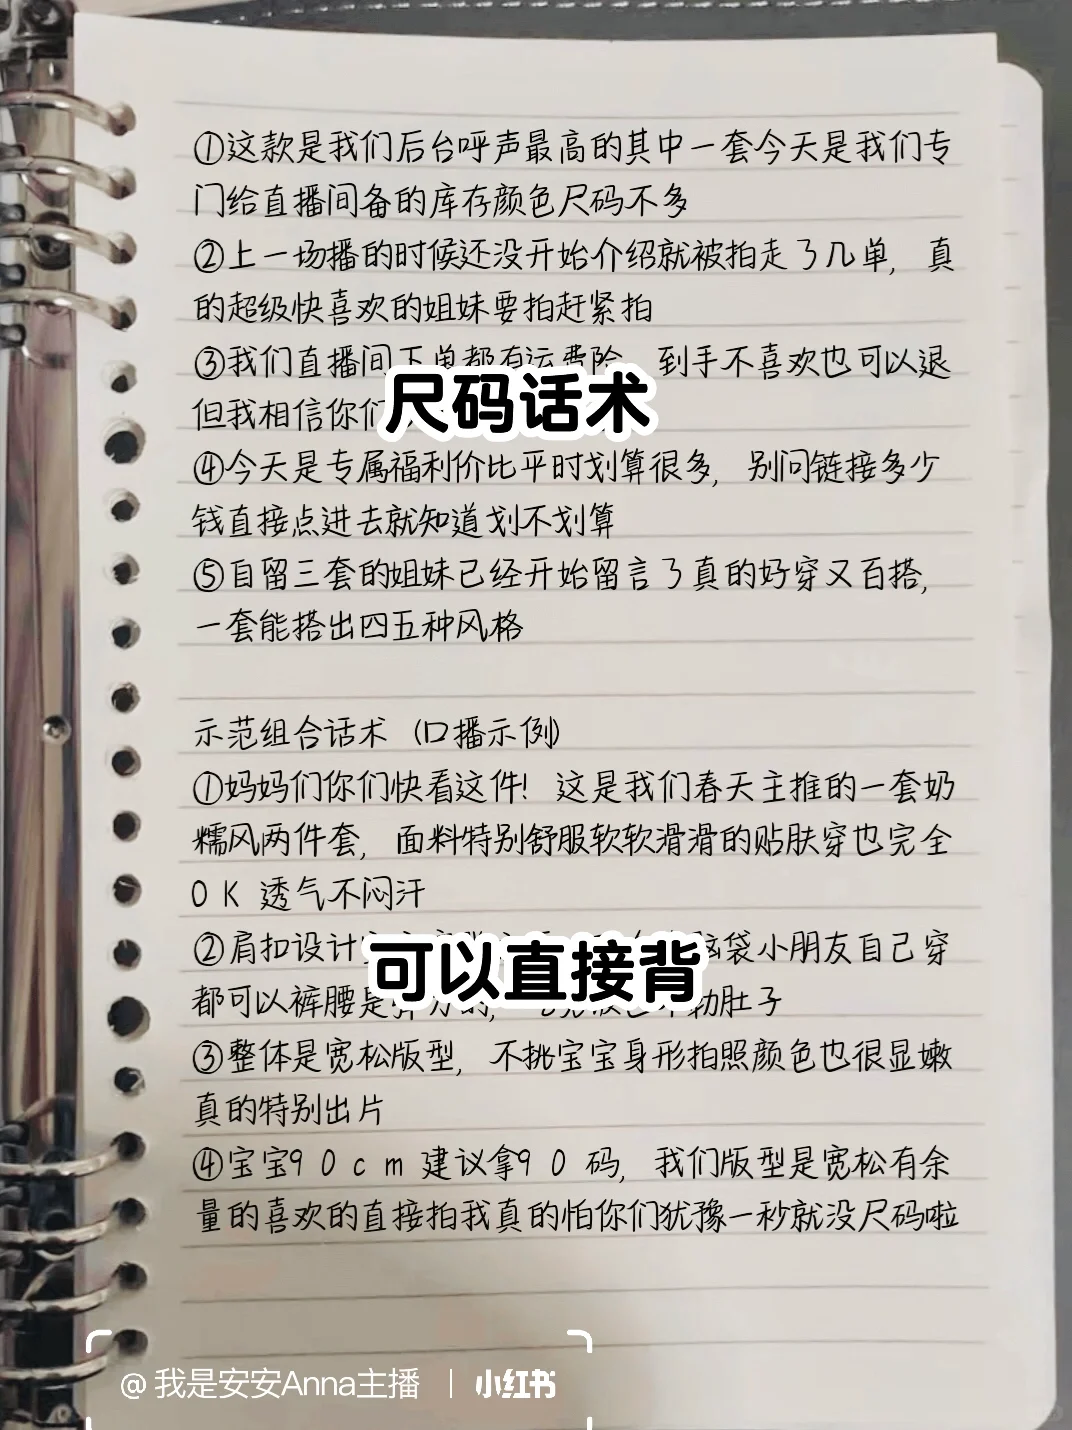 ①这款是我们后台呼声最高的其中一套今天是我们专
门给直播间备的库存颜色尺码不多
②上一场播的时候还没开始介绍就被拍走了几单，真
的超级快喜欢的姐妹要拍赶紧拍
③我们直播间下单都有运费险，到手不喜欢也可以退
但我相信你们
尺码话术
④今天是专属福利价比平时划算很多，别问链接多少
钱直接点进去就知道划不划算
⑤自留三套的姐妹已经开始留言了真的好穿又百搭，
一套能搭出四五种风格
示范组合话术（口播示例）
①妈妈们你们快看这件！这是我们春天主推的一套奶
糯风两件套，面料特别舒服软软滑滑的贴肤穿也完全
OK 透气不闷汗
②肩扣设计 脑袋小朋友自己穿
可以直接背
都可以裤腰是弹力的， 勒肚子
③整体是宽松版型，不挑宝宝身形拍照颜色也很显嫩
真的特别出片
④宝宝90cm建议拿90码，我们版型是宽松有余
量的喜欢的直接拍我真的怕你们犹豫一秒就没尺码啦
@我是安安Anna主播 | 小红书